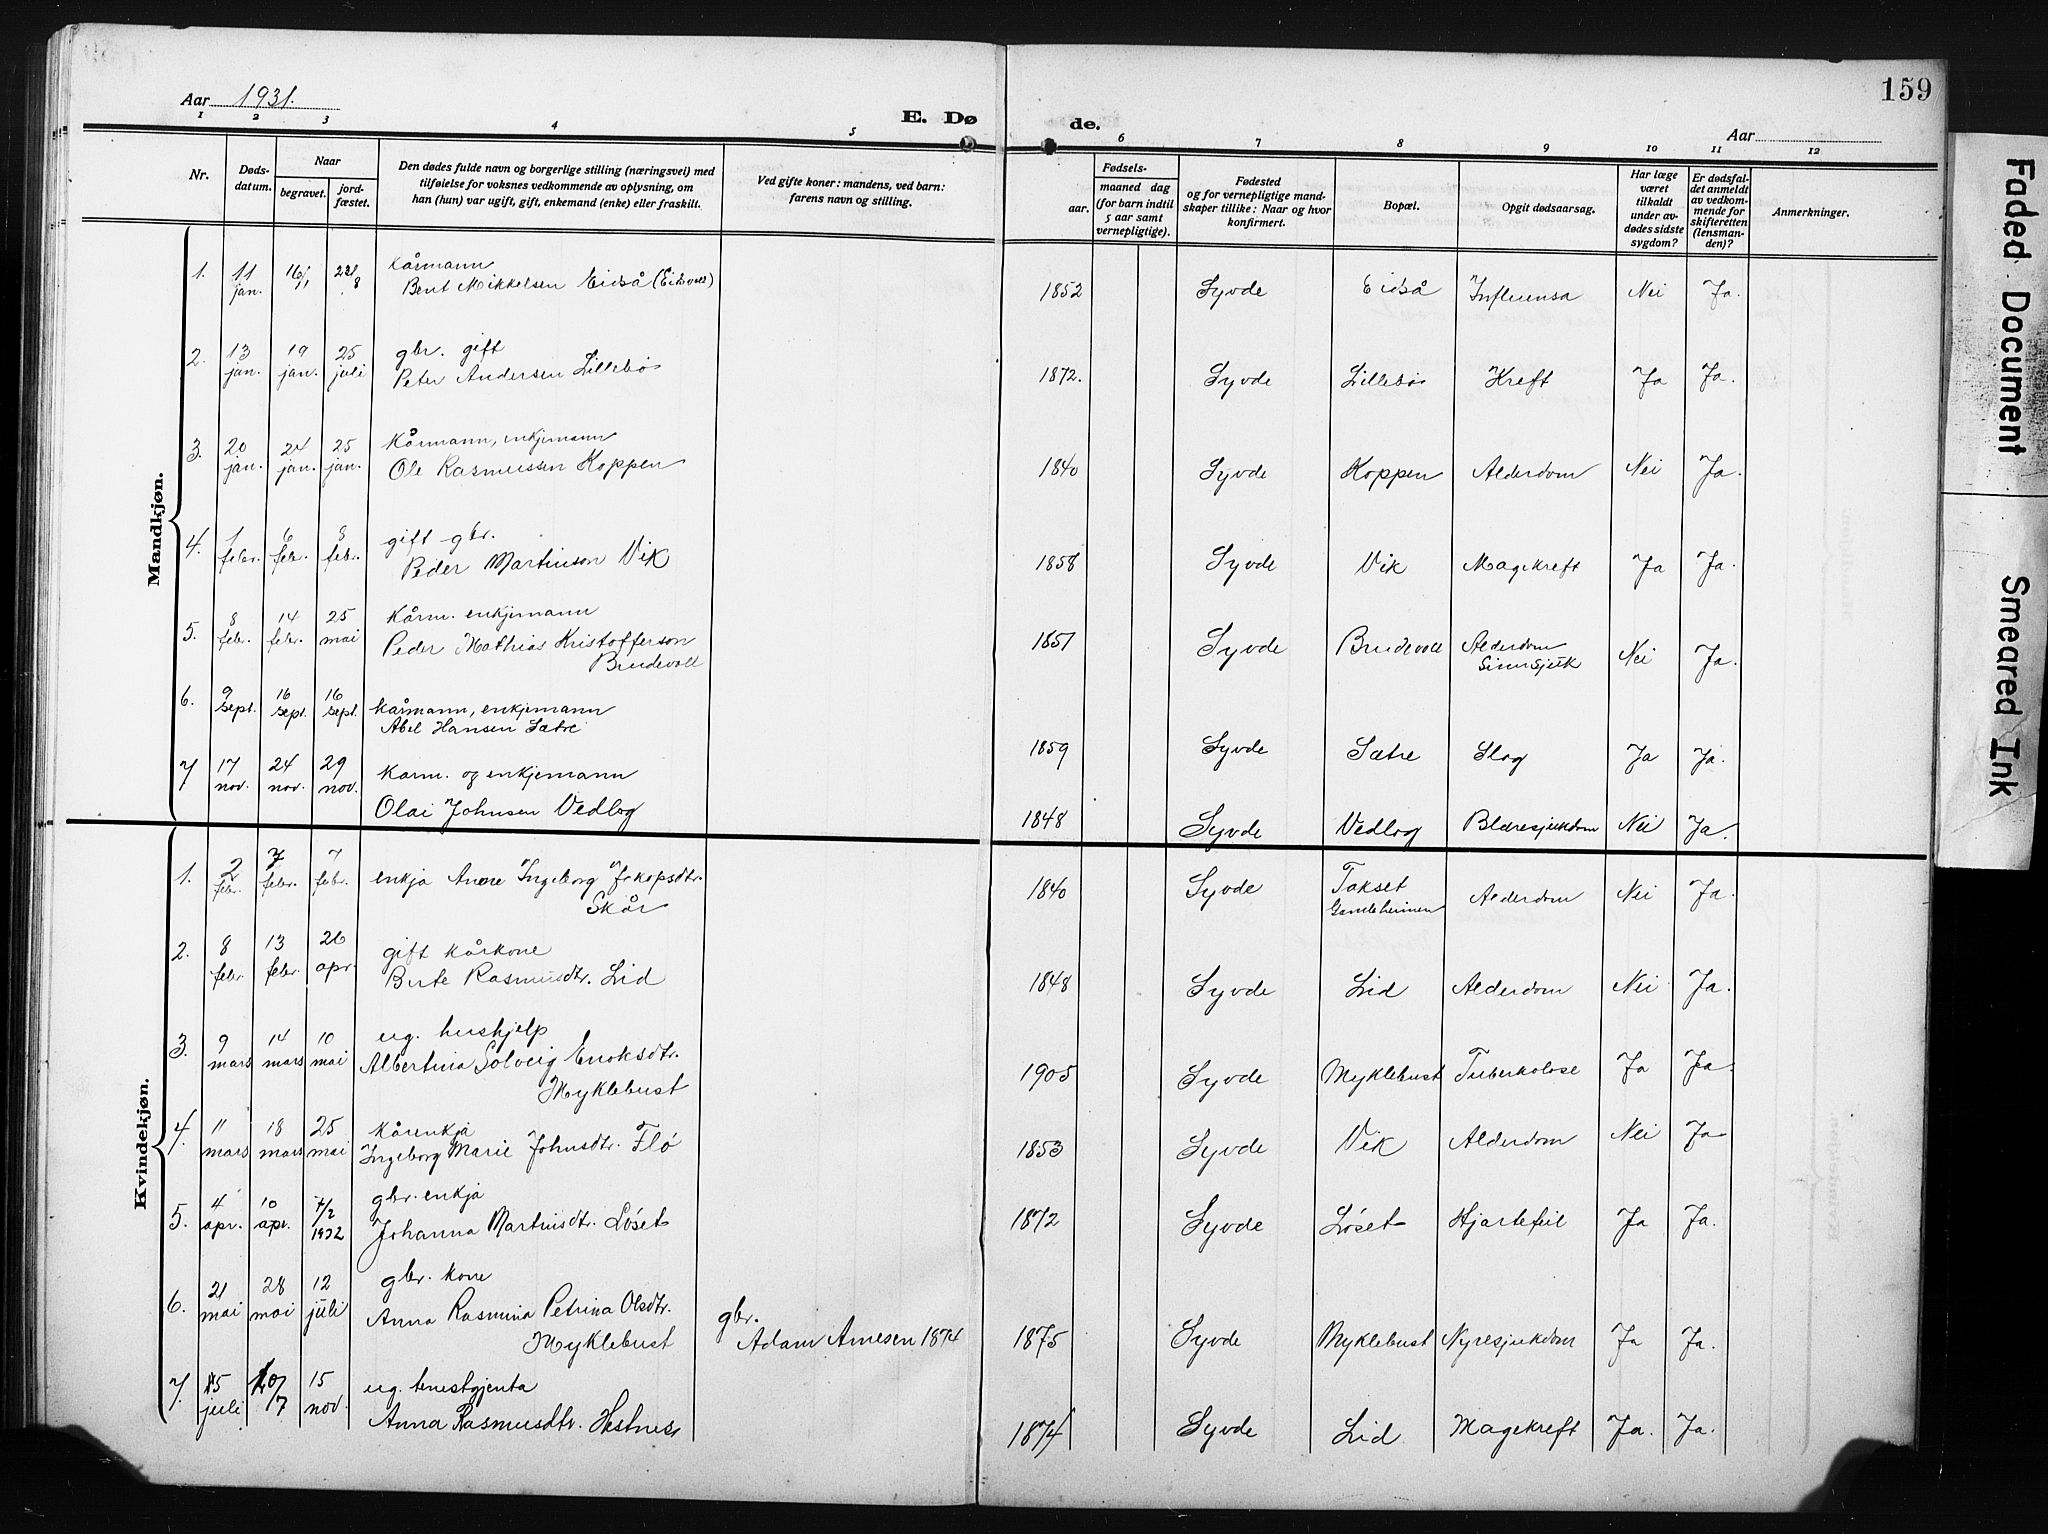 159
Aar 1931.
E. Døde.
Aar
1 2 3 4 5 6 7 8 9 10 11 12
Nr.
Døds-
datum.
Naar
begravet.
jord-
fæstet.
Den dødes fulde navn og borgerlige stilling (næringsvei) med
tilføielse for voksnes vedkommende av oplysning, om
han (hun) var ugift, gift, enkemand (enke) eller fraskilt.
Ved gifte koner: mandens, ved barn:
farens navn og stilling.
Fødsels-
aar.
maaned dag
(for barn indtil
5 aar samt
vernepligtige).
Fødested
og for vernepligtige mand-
skaper tillike: Naar og hvor
konfirmert.
Bopæl.
Opgit dødsaarsag.
Har læge
været
tilkaldt
under av-
dødes sidste
sygdom?
Er dødsfal-
det anmeldt
av vedkom-
mende for
skifteretten
(lensman-
den)?
Anmerkninger.
Mandkjøn.
1. 11 jan. 16/1 8 Kårmann
Bent Mikkelsen Eidså (Eidsvoll) 1852 Syvde Eidså Influensa Nei Ja.
2. 13 jan. 19 jan. 25 juli gbr. gift
Peter Andersen Lillebø 1872. Syvde Lillebø Kreft Ja Ja.
3. 20 jan. 24 jan. 25 jan. Kårmann, enkjemann
Ole Rasmussen Koppen 1840 Syvde Koppen Alderdom Nei Ja.
4. 1 febr. 6 febr. 8 febr. gift gbr.
Peder Martinson Vik 1858 Syvde Vik Magekreft Ja Ja.
5. 8 febr. 14 febr. 25 mai Kårm. enkjemann
Peder Mathias Kristofferson
Brudevoll 1851 Syvde Brudevoll Alderdom
Sinnsjuk Nei Ja.
6. 9 sept. 16 sept. 16 sept. Kårmann, enkjemann
Abel Hansen Sætre 1859 Syvde Sætre Slag Ja Ja.
7 17 nov. 24 nov. 29 nov. Karm. og enkjemann
Olai Johnsen Vedlog 1848 Syvde Vedlog Blæresjukdom Nei Ja.
Kvindekjøn.
1. 2 febr. 7 febr. 7 febr. enkja Anne Ingeborg Jakopsdtr.
Skår 1840 Syvde Takset
Gamleheimen Alderdom Nei Ja.
2. 8 febr. 13 febr. 26 apr. gift kårkone
Berte Rasmusdtr. Lid 1848 Syvde Lid Alderdom Nei Ja.
3. 9 mars 14 mars 10 mai ug. hushjelp
Albertina Solveig Enoksdtr.
Myklebust 1905 Syvde Myklebust Tuberkolose Ja Ja
4. 11 mars 18 mars 25 mai Kårenkja
Ingeborg Marie Johnsdtr. Flo 1853 Syvde Vik Alderdom Nei Ja
5. 4 apr. 10 apr. 7/2 1932 gbr. enkja
Johanna Martinsdtr. Løset 1872 Syvde Løset Hjartefeil Ja Ja.
6. 21 mai 28 mai 12 juli gbr. kone
Anna Rasmina Petrina Olsdtr.
Myklebust gbr.
Adam Arnesen 1874 1875 Syvde Myklebust Nyresjukdom Ja Ja.
7. 5 juli 10/7 15 nov. ug. tenestgjenta
Anna Rasmusdtr. Hestnes 1874 Syvde Lid Magekreft Ja. Ja.
Faded Document
Smeared Ink